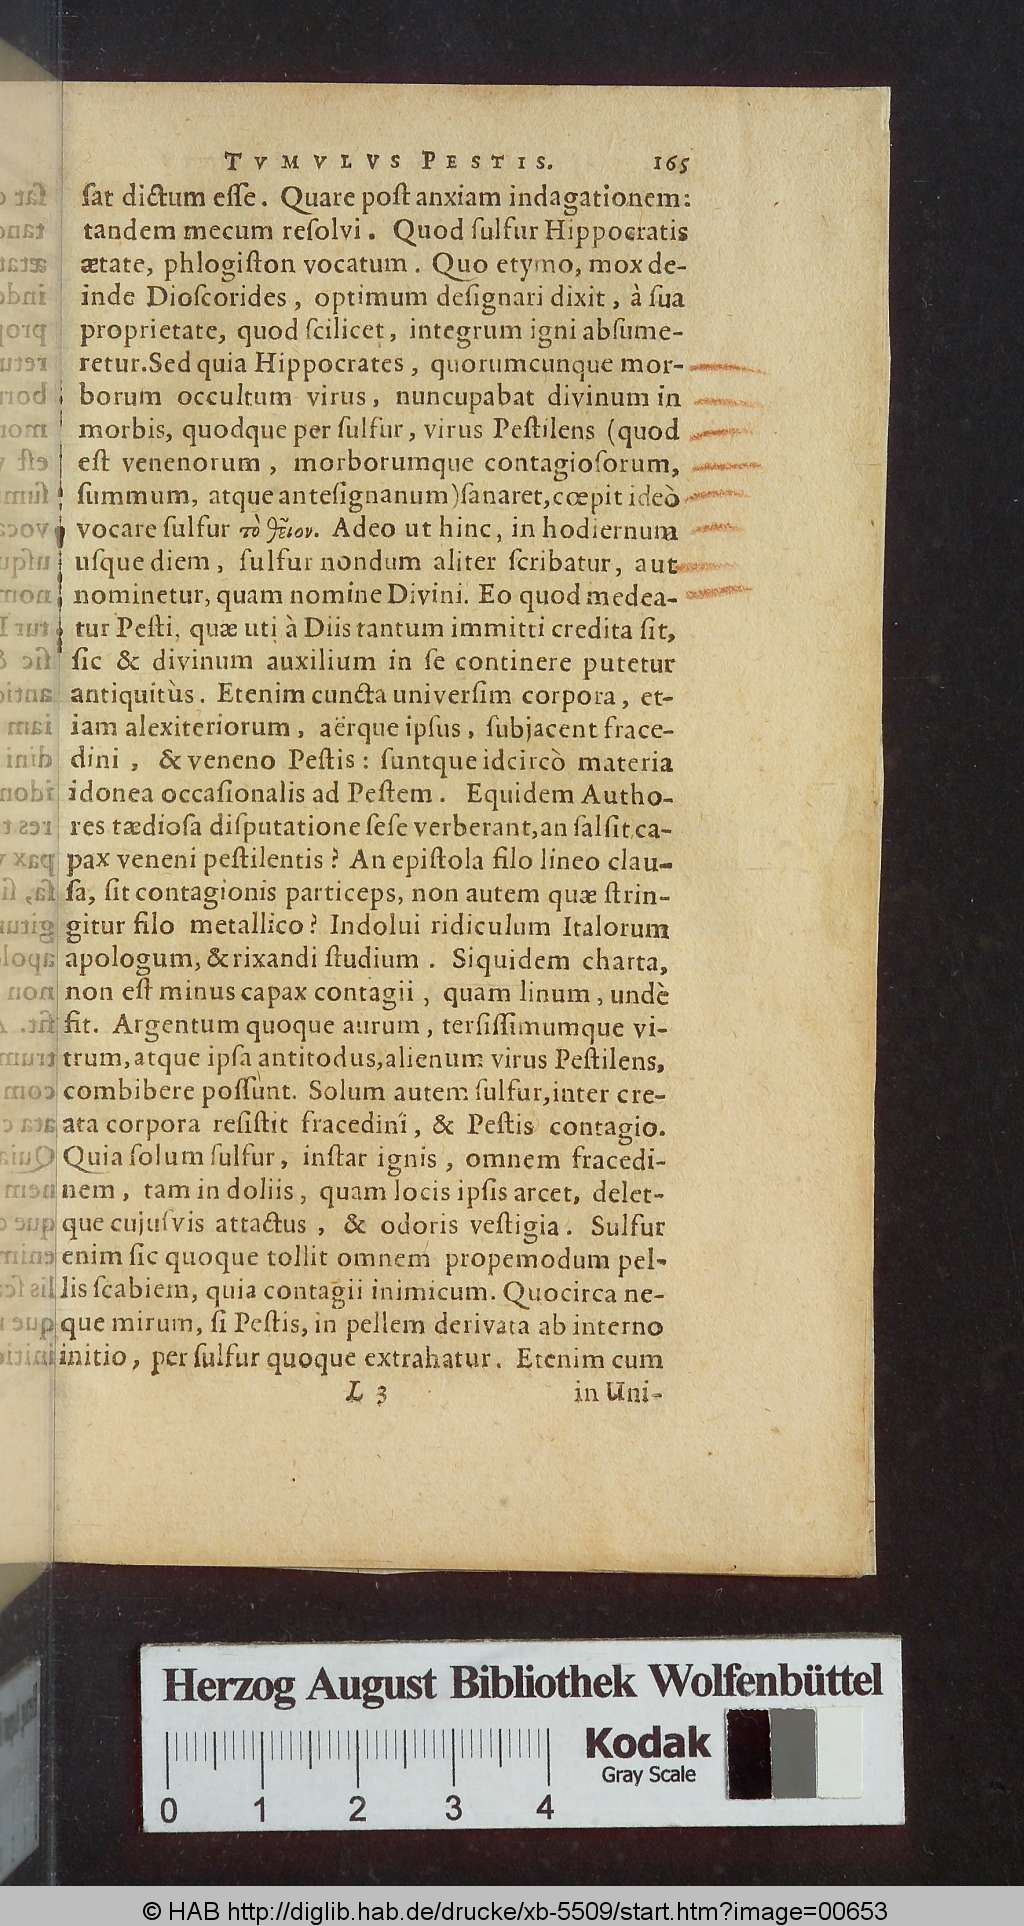 TVMVLVS PESTIS. 165
ſat dictum eſſe. Quare poſt anxiam indagationem:
tandem mecum reſolvi. Quod ſulfur Hippocratis
ætate, phlogiſton vocatum. Quo etymo, mox de-
inde Dioſcorides, optimum deſignari dixit, à ſua
proprietate, quod ſcilicet, integrum igni abſume-
retur. Sed quia Hippocrates, quorumcunque mor-
borum occultum virus, nuncupabat divinum in
morbis, quodque per ſulfur, virus Peſtilens (quod
eſt venenorum, morborumque contagioſorum,
ſummum, atque anteſignanum) ſanaret, cœpit ideò
vocare ſulfur τὸ θεῖον. Adeo ut hinc, in hodiernum
uſque diem, ſulfur nondum aliter ſcribatur, aut
nominetur, quam nomine Divini. Eo quod medea-
tur Peſti, quæ uti à Diis tantum immitti credita ſit,
ſic & divinum auxilium in ſe continere putetur
antiquitùs. Etenim cuncta univerſim corpora, et-
iam alexiteriorum, aërque ipſus, ſubjacent frace-
dini, & veneno Peſtis: ſuntque idcircò materia
idonea occaſionalis ad Peſtem. Equidem Autho-
res tædioſa diſputatione ſeſe verberant, an ſal ſit ca-
pax veneni peſtilentis? An epiſtola filo lineo clau-
ſa, ſit contagionis particeps, non autem quæ ſtrin-
gitur filo metallico? Indolui ridiculum Italorum
apologum, & rixandi ſtudium. Siquidem charta,
non eſt minus capax contagii, quam linum, undè
fit. Argentum quoque aurum, terſiſſimumque vi-
trum, atque ipſa antitodus, alienum virus Peſtilens,
combibere poſſunt. Solum autem ſulfur, inter cre-
ata corpora reſiſtit fracedini, & Peſtis contagio.
Quia ſolum ſulfur, inſtar ignis, omnem fracedi-
nem, tam in doliis, quam locis ipſis arcet, delet-
que cujuſvis attactus, & odoris veſtigia. Sulfur
enim ſic quoque tollit omnem propemodum pel-
lis ſcabiem, quia contagii inimicum. Quocirca ne-
que mirum, ſi Peſtis, in pellem derivata ab interno
initio, per ſulfur quoque extrahatur. Etenim cum
L 3 in Uni-
Herzog August Bibliothek Wolfenbüttel
Kodak
Gray Scale
0 1 2 3 4
© HAB http://diglib.hab.de/drucke/xb-5509/start.htm?image=00653